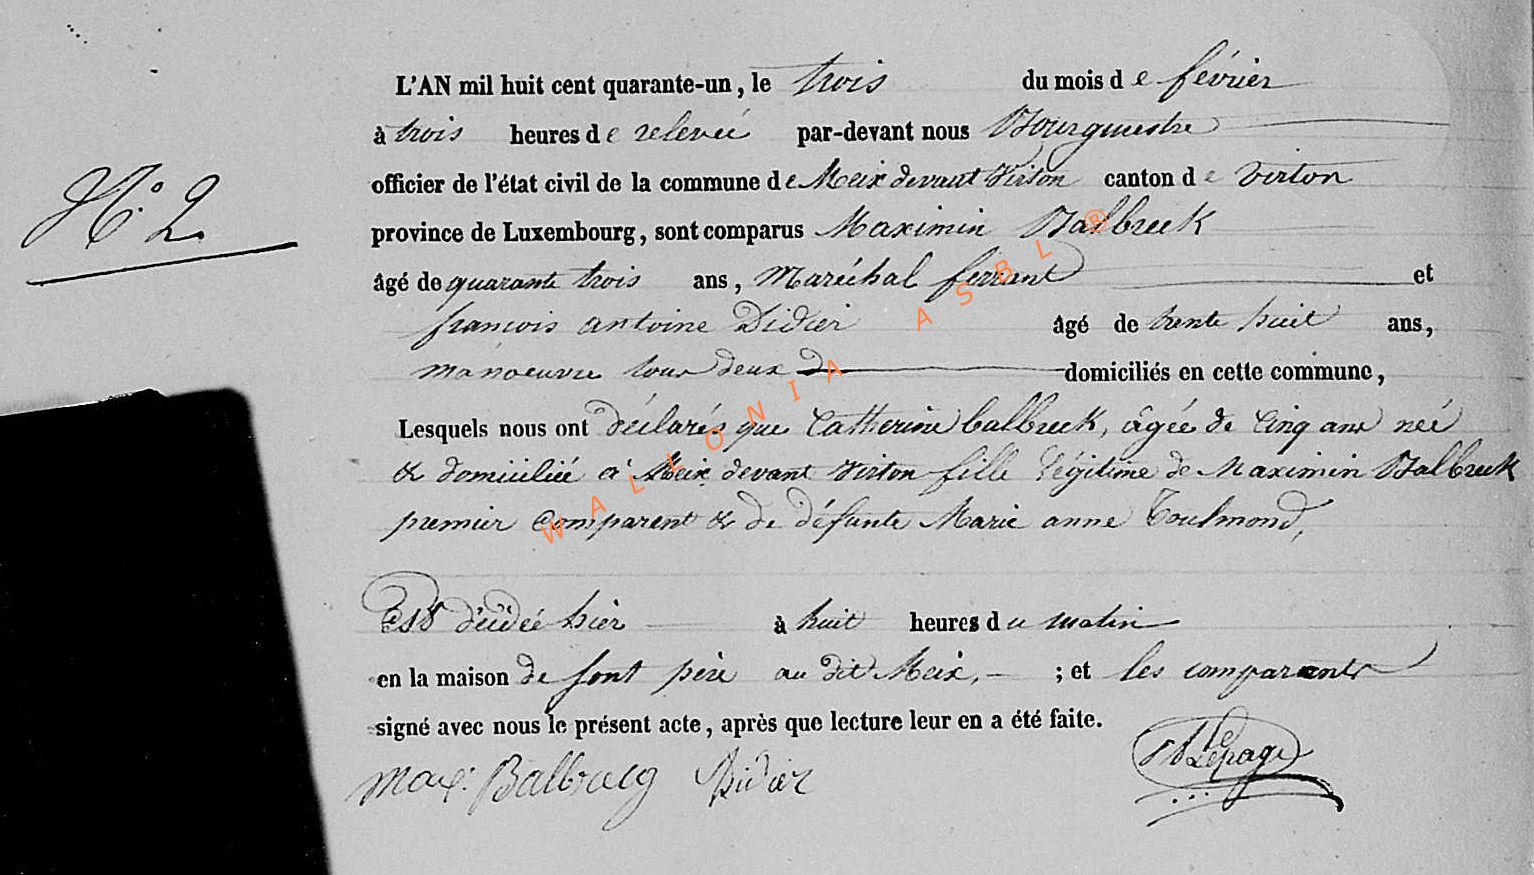 L'AN mil huit cent quarante-un, le trois du mois de février
à trois heures de relevée par-devant nous Bourgmestre
officier de l'état civil de la commune de Meix devant Virton canton de Virton
N.° 2
province de Luxembourg, sont comparus Maximin Balbreck
âgé de quarante trois ans, Maréchal ferrant et
françois antoine Didier âgé de trente huit ans,
manoeuvre tous deux domiciliés en cette commune,
Lesquels nous ont déclarés que Catherine balbreck, âgée de Cinq ans neé
& domiciliée à Meix devant Virton fille légitime de Maximin Balbreck
premier Comparent & de défunte Marie anne Toulmond,
Est décédée hier à huit heures du matin
en la maison de sont père au dit Meix, ; et les comparants
signé avec nous le présent acte, après que lecture leur en a été faite.
Max: Balbracg Didier Lepage
WALLONIA ASBL ®